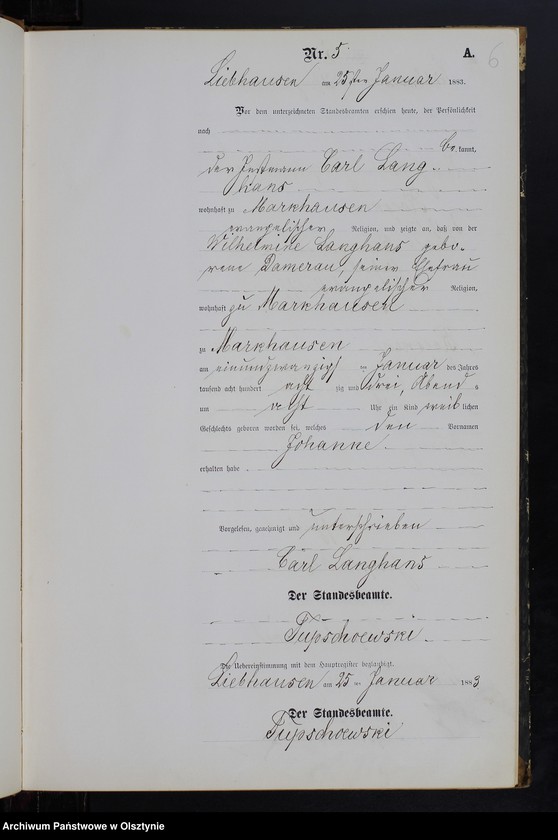 Nr. 5
A.
6
Liebhausen am 25ten Januar 1883.
Vor dem unterzeichneten Standesbeamten erschien heute, der Persönlichkeit
nach
be kannt,
der Instmann Carl Lang
hans
wohnhaft zu Markhausen
evangelischer Religion, und zeigte an, daß von der
Wilhelmine Langhans gebo-
rene Damerau, seiner Ehefrau
evangelischer Religion,
wohnhaft zu Markhausen
zu Markhausen
am einundzwanzigsten Januar des Jahres
tausend acht hundert acht zig und drei, Abend s
um acht Uhr ein Kind weib lichen
Geschlechts geboren worden sei, welches den Vornamen
Johanne
erhalten habe
Vorgelesen, genehmigt und unterschrieben
Carl Langhans
Der Standesbeamte.
Die Uebereinstimmung mit dem Hauptregister beglaubigt.
Liebhausen am 25ten Januar 1883
Der Standesbeamte.
Archiwum Państwowe w Olsztynie